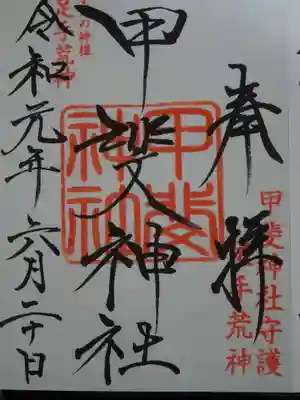 甲斐神社守護
足手荒神
奉拝
甲斐神社
甲斐神社
の神様
足手荒神
令和元年六月二十日